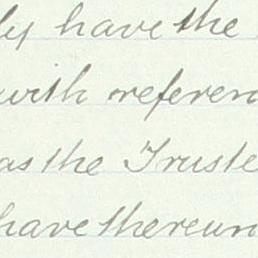 ly have the
with referen
as the Truste
have thereun